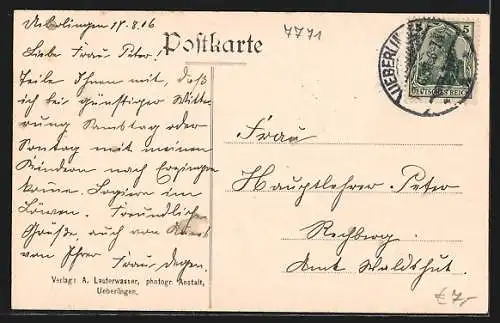 Ueberlingen 17.8.06
4771
Postkarte
Liebe Frau Peter!
Teile Ihnen mit, daß
ich bei günstiger Witte-
rung Samstag oder
Sontag mit meinen
Kindern nach
komme. Logiere im
Löwen. Freundliche
Grüße, auch von
von Ihrer
Frau Degen.
Verlag: A. Lauterwasser, photogr. Anstalt,
Ueberlingen.
UEBERLIN
5
DEUTSCHES REICH
Frau
Hauptlehrer Peter
Rechberg.
Amt Waldshut.
€ 7,-